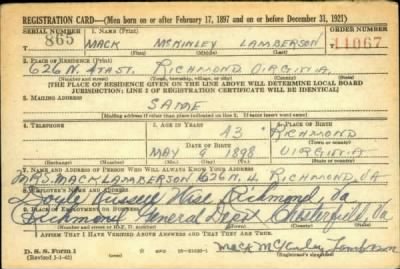 REGISTRATION CARD—(Men born on or after February 17, 1897 and on or before December 31, 1921)
SERIAL NUMBER 1. NAME (Print) ORDER NUMBER
865 MACK McKINLEY LAMBERSON 11067
(First) (Middle) (Last)
2. PLACE OF RESIDENCE (Print)
626 N. 4TH ST. RICHMOND VIRGINIA
(Number and street) (Town, township, village, or city) (County) (State)
[THE PLACE OF RESIDENCE GIVEN ON THE LINE ABOVE WILL DETERMINE LOCAL BOARD
JURISDICTION; LINE 2 OF REGISTRATION CERTIFICATE WILL BE IDENTICAL]
3. MAILING ADDRESS
SAME
[Mailing address if other than place indicated on line 2. If same insert word same]
4. TELEPHONE 5. AGE IN YEARS 6. PLACE OF BIRTH
43 RICHMOND
DATE OF BIRTH (Town or county)
MAY 9 1898 VIRGINIA
(Exchange) (Number) (Mo.) (Day) (Yr.) (State or country)
7. NAME AND ADDRESS OF PERSON WHO WILL ALWAYS KNOW YOUR ADDRESS
MRS. MACK LAMBERSON 626 N. 4 RICHMOND, VA
8. EMPLOYER'S NAME AND ADDRESS
Doyle Russell Wise Richmond, Va
9. PLACE OF EMPLOYMENT OR BUSINESS
Richmond General Depot Chesterfield, Va.
(Number and street or R. F. D. number) (Town) (County) (State)
I AFFIRM THAT I HAVE VERIFIED ABOVE ANSWERS AND THAT THEY ARE TRUE.
D. S. S. Form 1
(Revised 1-1-42) (over)
Mack McKinley Lamberson
(Registrant's signature)